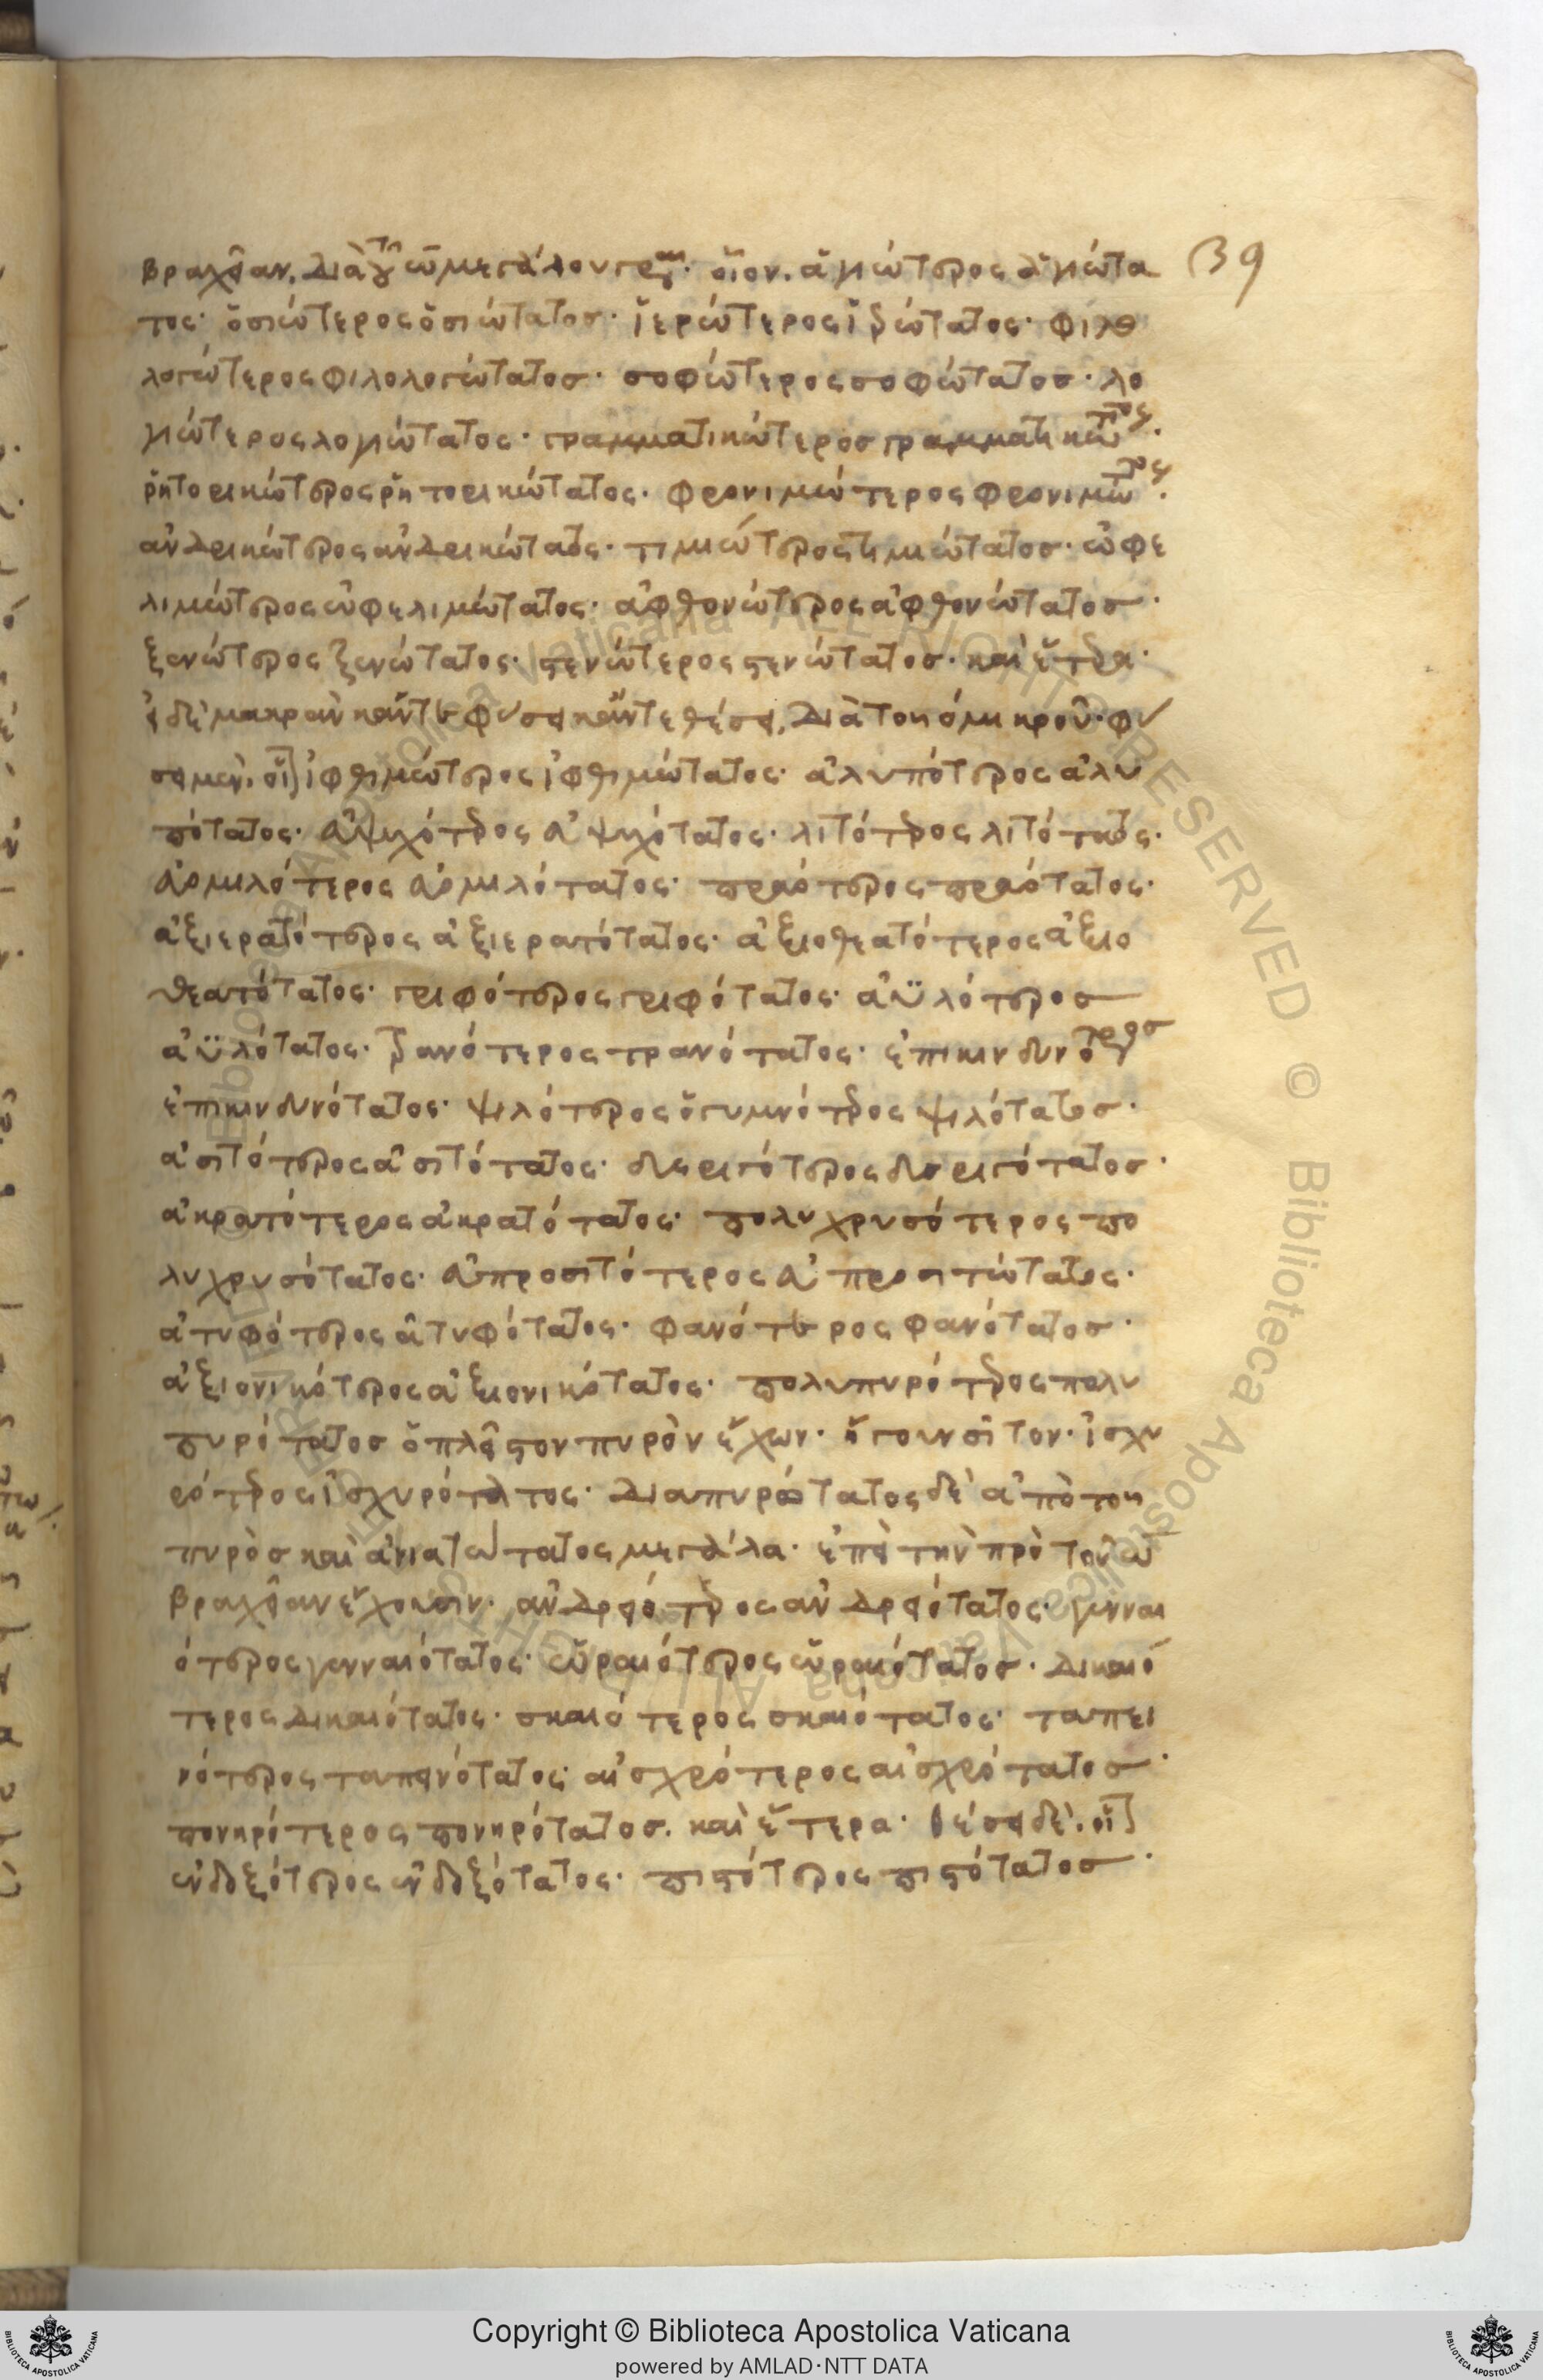 βραχεῖαν. διὰ τοῦ ω μεγάλου γράφεται. οἷον. ἁγιώτερος ἁγιώτα 39
τος· ὁσιώτερος ὁσιώτατος· ἱερώτερος ἱερώτατος· φιλο
λογώτερος φιλολογώτατος· σοφώτερος σοφώτατος· λο
γιώτερος λογιώτατος· γραμματικώτερος γραμματικώτατος·
ῥητορικώτερος ῥητορικώτατος· φρονιμώτερος φρονιμώτατος·
ἀνδρικώτερος ἀνδρικώτατος· τιμιώτερος τιμιώτατος· ὠφε
λιμώτερος ὠφελιμώτατος· ἀφθονώτερος ἀφθονώτατος·
ξενώτερος ξενώτατος· στενώτερος στενώτατος· καὶ ἕτερα·
εἰ δὲ μακρὰν κἄν τε φύσει κἄν τε θέσει, διὰ τοῦ ο μικροῦ· φύ
σει μὲν· οἷον ἰφθιμώτερος ἰφθιμώτατος· ἀλυπότερος ἀλυ
πότατος· ἀψυχότερος ἀψυχότατος· λιτότερος λιτότατος·
πραότερος πραότατος·
ἀξιερατότερος ἀξιερατότατος· ἀξιοθεατότερος ἀξιο
θεατότατος· γριφότερος γριφότατος· ἀϋλότερος
ἀϋλότατος· τρανότερος τρανότατος· ἐπικινδυνότερος
ἐπικινδυνότατος· ψιλότερος ὁ γυμνότερος ψιλότατος·
ἀσιτότερος ἀσιτότατος·
ἀκρατότερος ἀκρατότατος· πολυχρυσότερος πο
λυχρυσότατος· ἀπροσιτότερος ἀπροσιτώτατος·
ἀτυφότερος ἀτυφότατος· φανότερος φανότατος·
ἀξιονικότερος ἀξιονικότατος· πολυπυρότερος πολυ
πυρότατος ὁ πλεῖστον πυρὸν ἔχων· ἤγουν σῖτον· ἰσχυ
ρότερος ἰσχυρότατος· διαπυρώτατος δὲ ἀπὸ τοῦ
πυρὸς καὶ ἀνιατώτατος μεγάλα· ἐπεὶ τὴν πρὸ τοῦ ω
βραχεῖαν ἔχουσιν· ἀνδρειότερος ἀνδρειότατος· γενναι
ότερος γενναιότατος· ὡραιότερος ὡραιότατος· δικαιό
τερος δικαιότατος· σκαιότερος σκαιότατος· ταπει
νότερος ταπεινότατος· αἰσχρότερος αἰσχρότατος·
πονηρότερος πονηρότατος. καὶ ἕτερα· θέσει δὲ· οἷον
ἐνδοξότερος ἐνδοξότατος· πιστότερος πιστότατος·
Copyright © Biblioteca Apostolica Vaticana
powered by AMLAD·NTT DATA